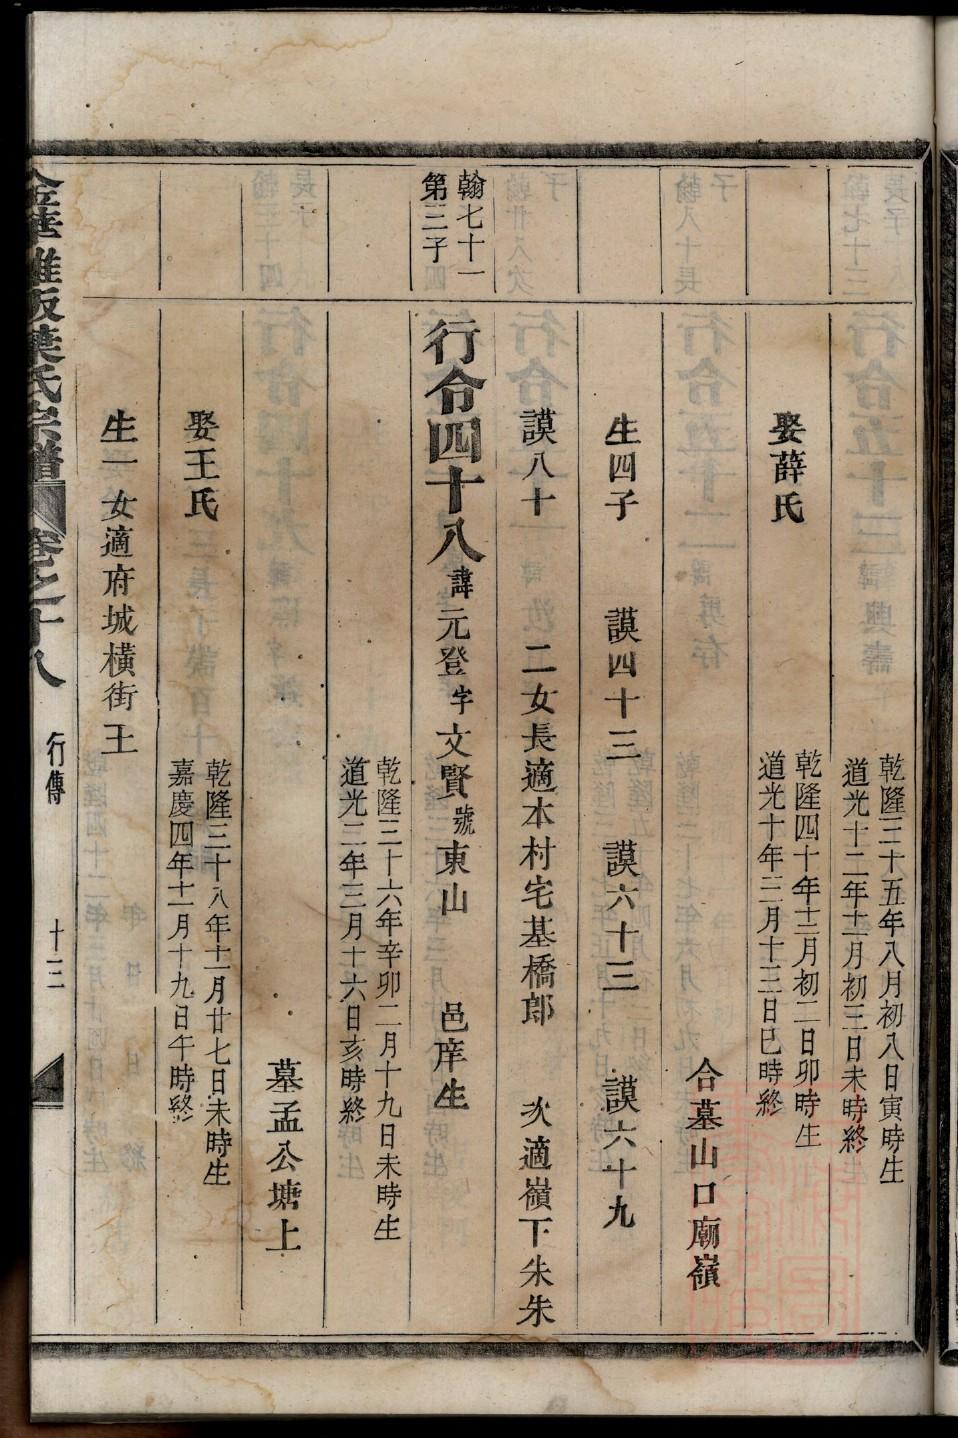 乾隆三十五年八月初八日寅時生
道光十二年十二月初三日未時終
娶薛氏
乾隆四十年十二月初二日卯時生
道光十年三月十三日巳時終
合墓山口廟嶺
生四子 謨四十三 謨六十三 謨六十九
謨八十 二女長適本村宅基橋郎 次適嶺下朱朱
翰七十一
第三子
行令四十八諱元登字文賢號東山 邑庠生
乾隆三十六年辛卯二月十九日未時生
道光二年三月十六日亥時終
墓孟公塘上
娶王氏
乾隆三十八年十一月廿七日未時生
嘉慶四年十一月十九日午時終
生一女適府城橫街王
葉氏宗譜 卷之十八 行傳 十三